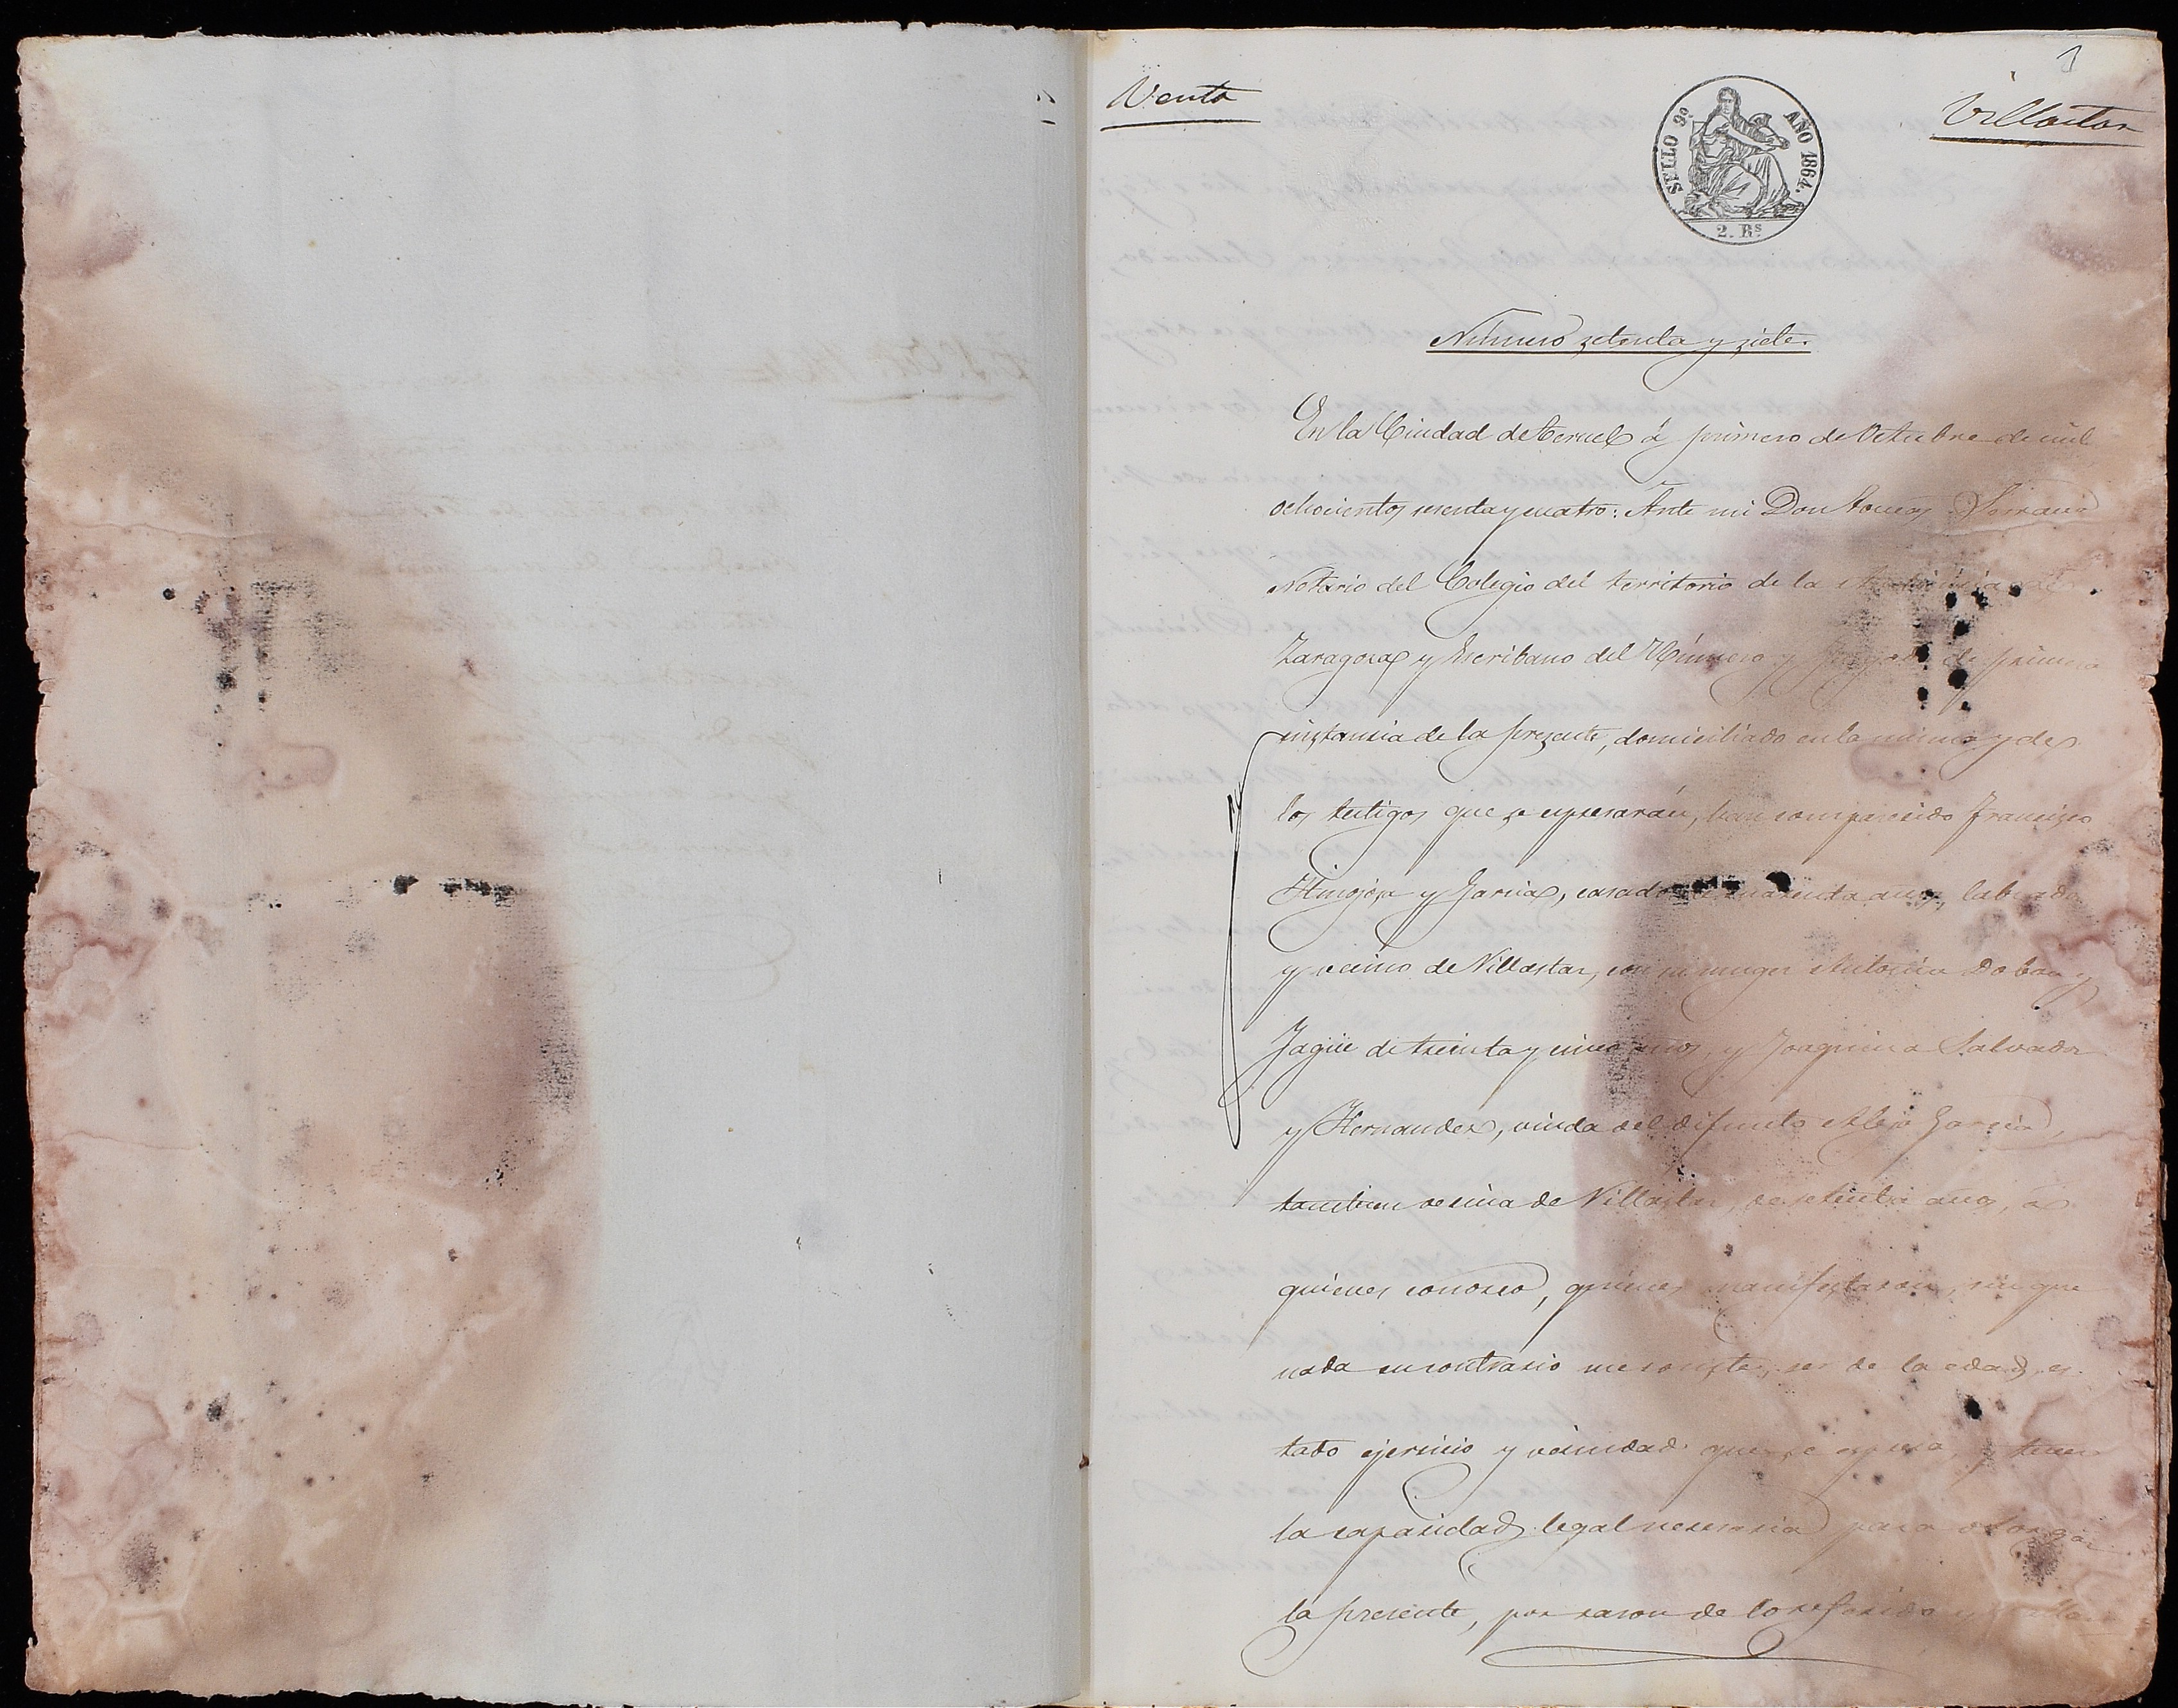 1
Venta
Villastar
SELLO 9º AÑO 1864.
2. Rs
Número setenta y siete.
En la Ciudad de Teruel á primero de Octubre de mil
ochocientos sesenta y cuatro: Ante mi Don Tomas Serrano
Notario del Colegio del territorio de la Audiencia de
Zaragoza y Escribano del Número y Juzgado de primera
instancia de la presente, domiciliado en la misma y de
los testigos que se espresarán, han comparecido Francisco
Hinojosa y Garcia, casado de cuarenta años, labrador
y vecino de Villastar, con su muger Antonia Dobon y
Jagüe de treinta y cinco años, y Joaquina Salvador
y Hernandez, viuda del difunto Alejo Garcia,
tambien vecina de Villastar, de setenta años, á
quienes conozco, quienes manifestaron, sin que
nada en contrario me conste, ser de la edad, es-
tado ejercicio y vecindad que se espresa, y tener
la capacidad legal necesaria para otorgar
la presente, por razon de lo referido y